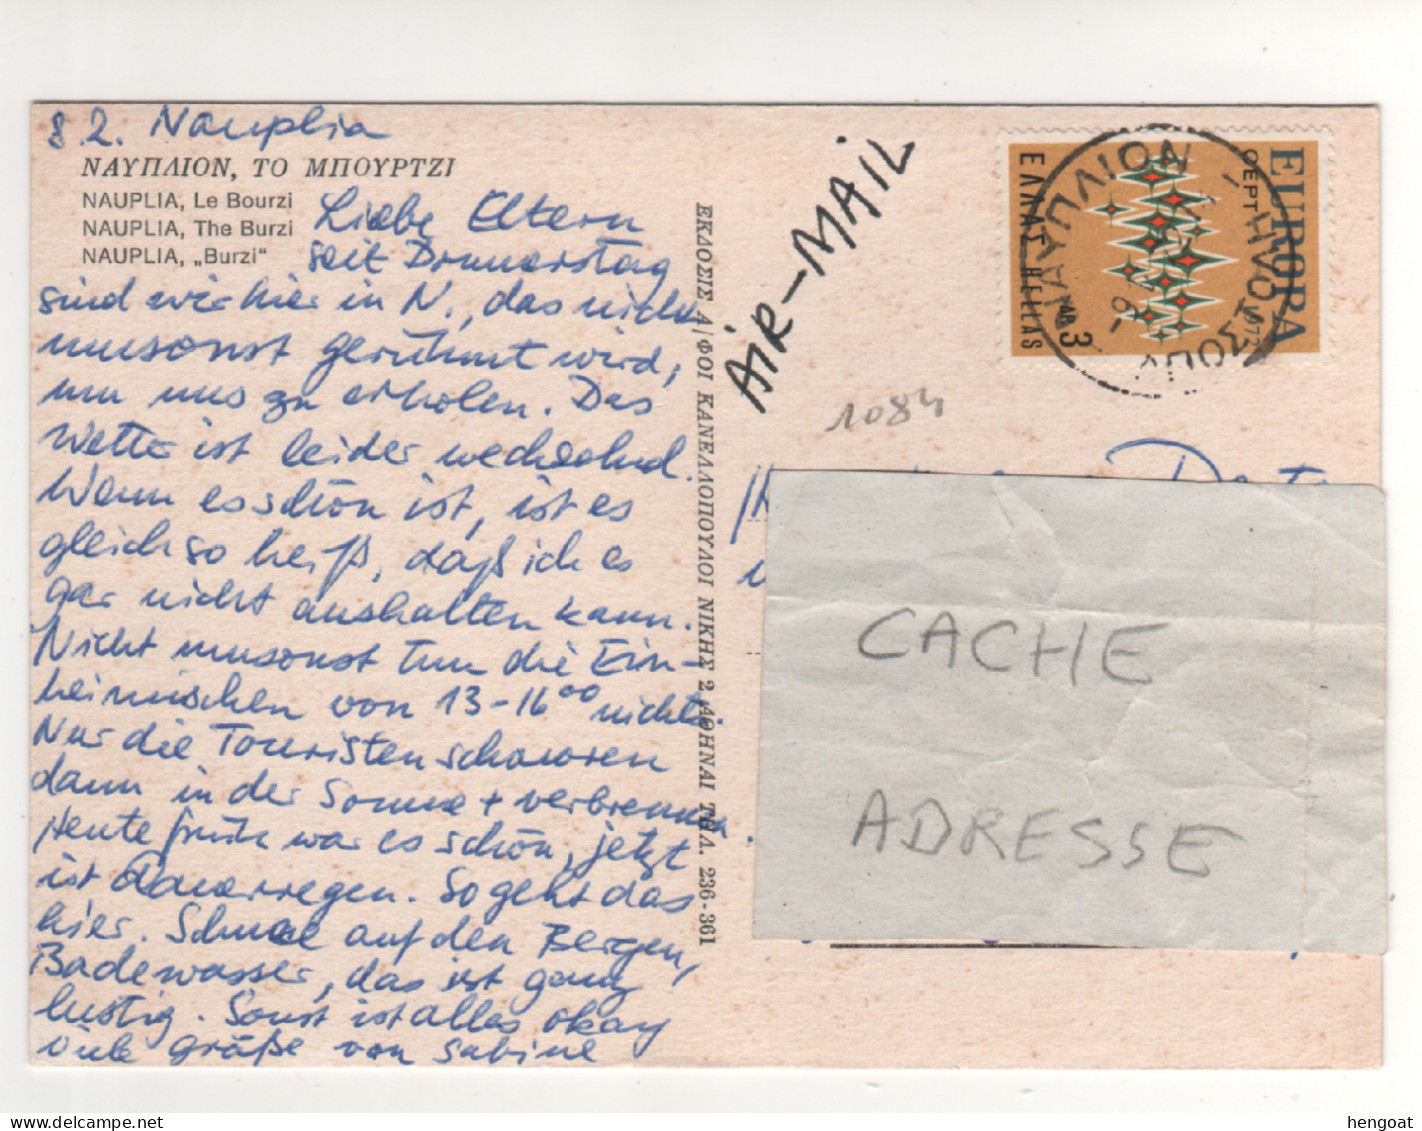 8.2. Nauplia
ΝΑΥΠΛΙΟΝ, ΤΟ ΜΠΟΥΡΤΖΙ
NAUPLIA, Le Bourzi
NAUPLIA, The Burzi
NAUPLIA, „Burzi“
Liebe Eltern
seit Donnerstag
sind wir hier in N., das nicht
umsonst gerühmt wird,
um uns zu erholen. Das
Wetter ist leider wechselnd.
Wenn es schön ist, ist es
gleich so heiß, daß ich es
gar nicht aushalten kann.
Nicht umsonst tun die Ein-
heimischen von 13-16⁰⁰ nichts.
Nur die Touristen schmoren
dann in der Sonne + verbrennen.
Heute früh war es schön, jetzt
ist Dauerregen. So geht das
hier. Schnee auf den Bergen,
Badewasser, das ist ganz
lustig. Sonst ist alles okay
viele Grüße von Sabine
ΕΚΔΟΣΙΣ Α/ΦΟΙ ΚΑΝΕΛΛΟΠΟΥΛΟΙ ΝΙΚΗΣ 2 ΑΘΗΝΑΙ ΤΗΛ. 236-361
AIR-MAIL
1084
ΕΛΛΑΣ HELLAS
ΔΡ 3
EUROPA
CEPT 1972
ΝΑΥΠΛΙΟΝ
CACHE
ADRESSE
hengoat
www.delcampe.net